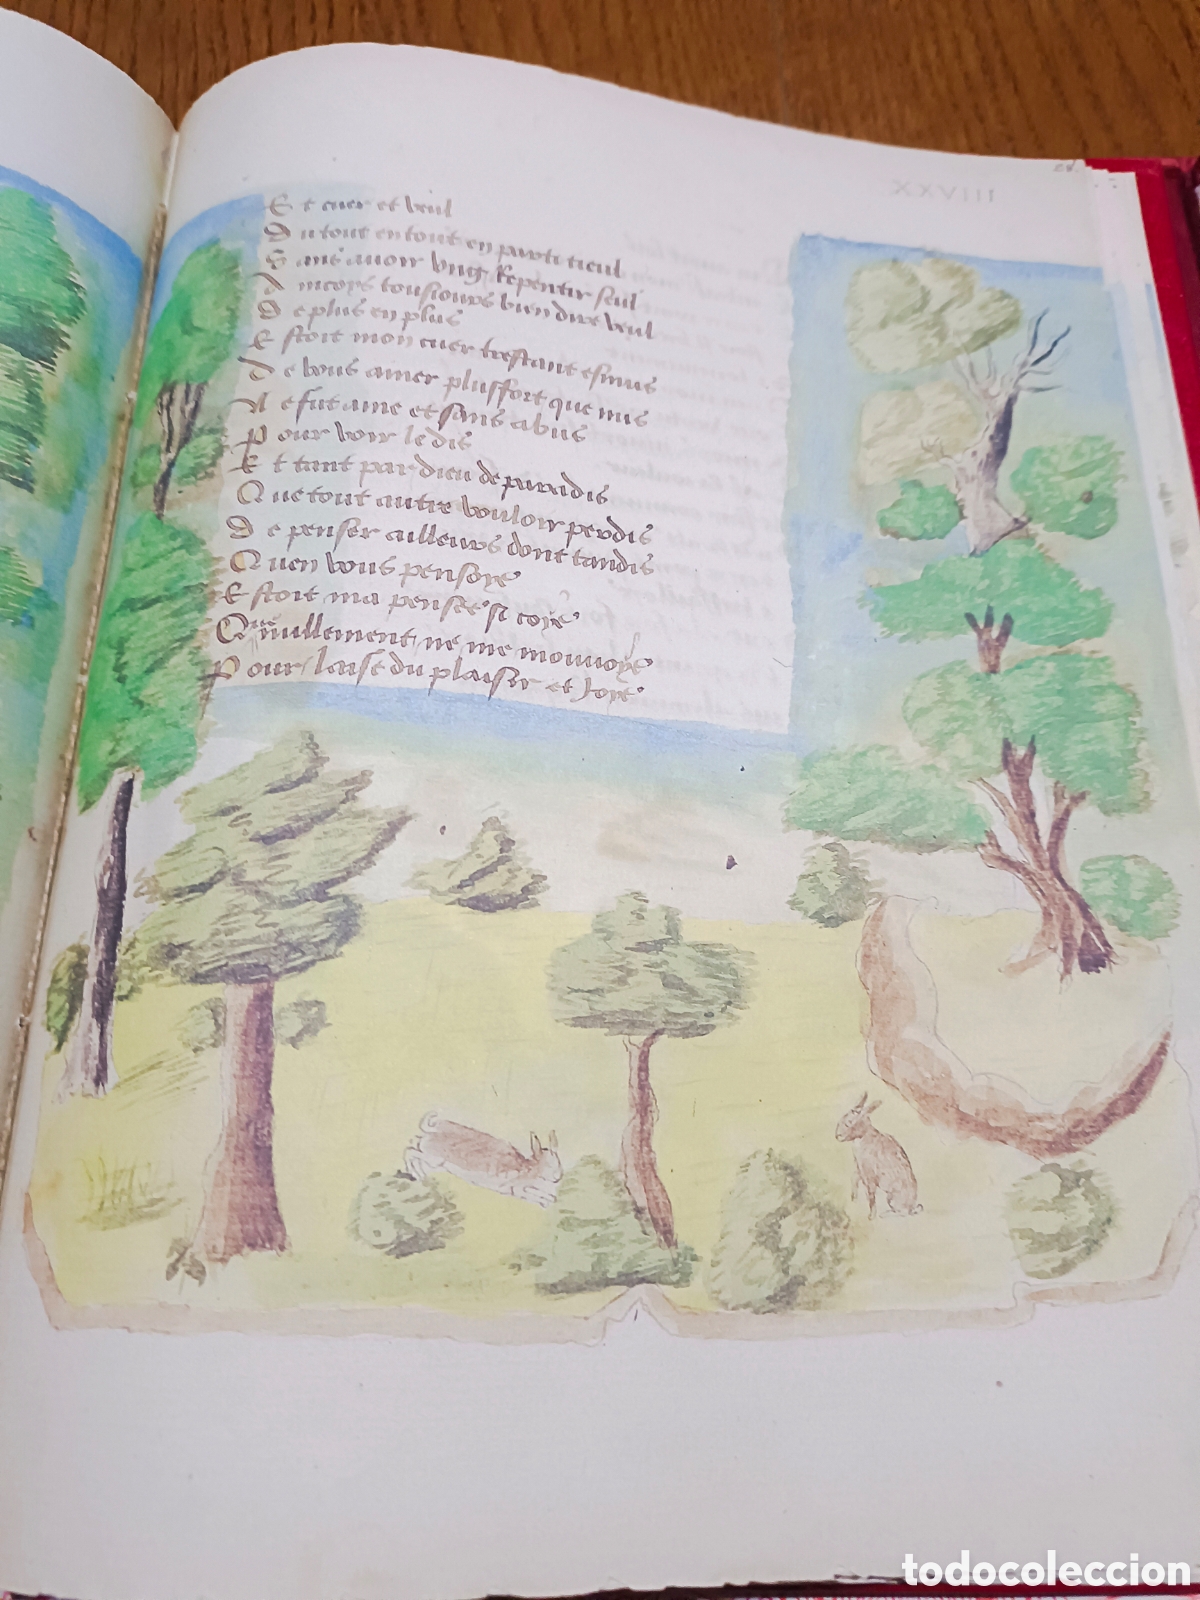 E t cuer et veul
D u tout en tout en parti ticul
S ans avoir ung Repentir seul
A incoys tousiours bien dire veul
D e plus en plus
E stoit mon cuer trestant esmus
D e vous amer plusfort que nus
A ce fut ame et sans abus
P our voir le dis
E t tant par dieu de paradis
Q ue tout autre vouloir perdis
D e penser ailleurs dont tandis
Q uen vous pensoye
E stoit ma pensee si coye
Q ue nullement ne me mouvoye
P our laise du plaisir et Joye
XXVIII
todocoleccion